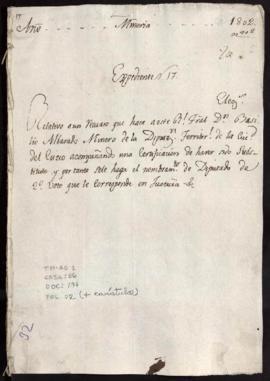 17
Año Mineria 1802
Expediente nº 17
Relativo a un Recurso que hace a este Rl. Tral Dn Basi
lio Albarado Minero de la Diputn. Territorl. de la Ciud
del Cuzco acompañando una Certificacion de haver sido Substi
tuto y por tanto sele haga el nombramto. de Diputado de
2º Voto que le corresponde en Justicia &
TM-AD 1
DOC: 196
FOL. 02 (+ carátula)